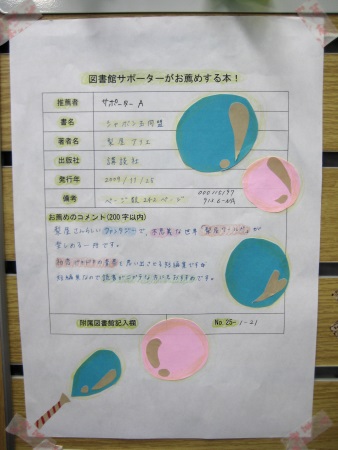 図書館サポーターがお薦めする本！
推薦者 サポーターA
書名 シャボン玉同盟
著者名 梨屋アリエ
出版社 講談社
発行年
備考 ページ数 242ページ
お薦めのコメント(200字以内)
梨屋さんらしいファンタジーで、不思議な世界「梨屋ワールド」が
楽しめる一冊です。
を思い出させる短編集ですが
短編集なので読書がにがてな方にもおすすめです。
附属図書館記入欄 No.25-1-21